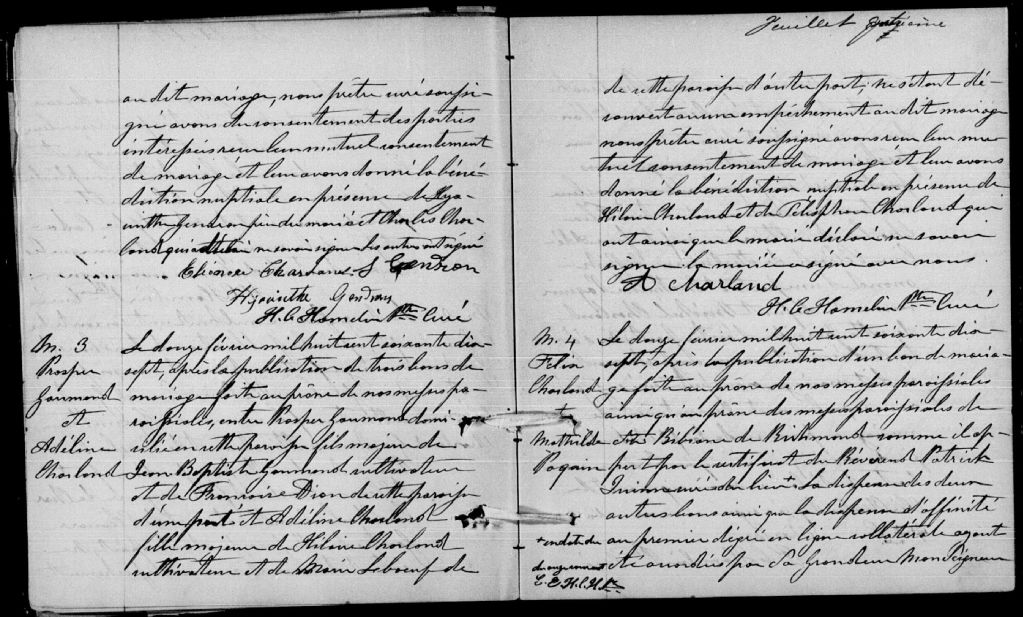 au dit mariage, nous prêtre curé soussi-
gné avons du consentement des parties
intéressés reçu leur mutuel consentement
de mariage et leur avons donné la béné-
diction nuptiale en présence de Hya-
cinthe Gendron père du marié et Charles Char-
land qui a déclaré ne savoir signer les autres ont signé
Eleonore Charland S Gendron
Hyacinthe Gendron
H. C. Hamelin Ptre Curé
M. 3
Prosper
Gaumond
et
Adéline
Charland
Le douze février mil huit cent soixante dix
sept, après la publication de trois bans de
mariage faite au prône de nos messes pa-
roissiales, entre Prosper Gaumond domi-
cilié en cette paroisse fils majeur de
Jean Baptiste Gaumond cultivateur
et de Françoise Dion de cette paroisse
d'une part et Adéline Charland
fille majeure de Hilaire Charland
cultivateur et de Marie Leboeuf de
Feuillet
de cette paroisse d'autre part; ne s'étant dé-
couvert aucun empêchement au dit mariage
nous prêtre curé soussigné avons reçu leur mu-
tuel consentement de mariage et leur avons
donné la bénédiction nuptiale en présence de
Hilaire Charland et de Télesphore Charland qui
ont ainsi que le marié déclaré ne savoir
signer la mariée a signé avec nous.
A Charland
H. C. Hamelin Ptre Curé
M. 4
Félix
Charland
+
Mathilde
Paquin
Le douze février mil huit cent soixante dix
sept, après la publication d'un ban de maria-
ge faite au prône de nos messes paroissiales
ainsi qu'au prône des messes paroissiales de
Ste Bibiane de Richmond comme il ap-
pert par le certificat du Révérend Patrick
curé du lieu + la dispense des deux
autres bans ainsi que la dispense d'affinité
au premier degré en ligne collatérale ayant
été accordées par Sa Grandeur Monseigneur
+ en date du